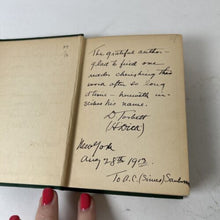 The grateful author –
glad to find one
reader cherishing this
work after so long
a time – herewith in-
scribes his name.
D. Torbett
New York
Aug 28th 19
To D.C. (